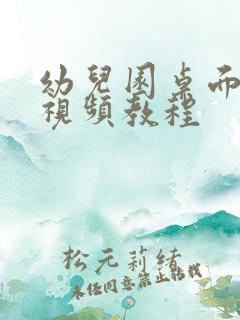 幼兒園桌面
視頻教程
松元莉緒
未任同意禁止转载